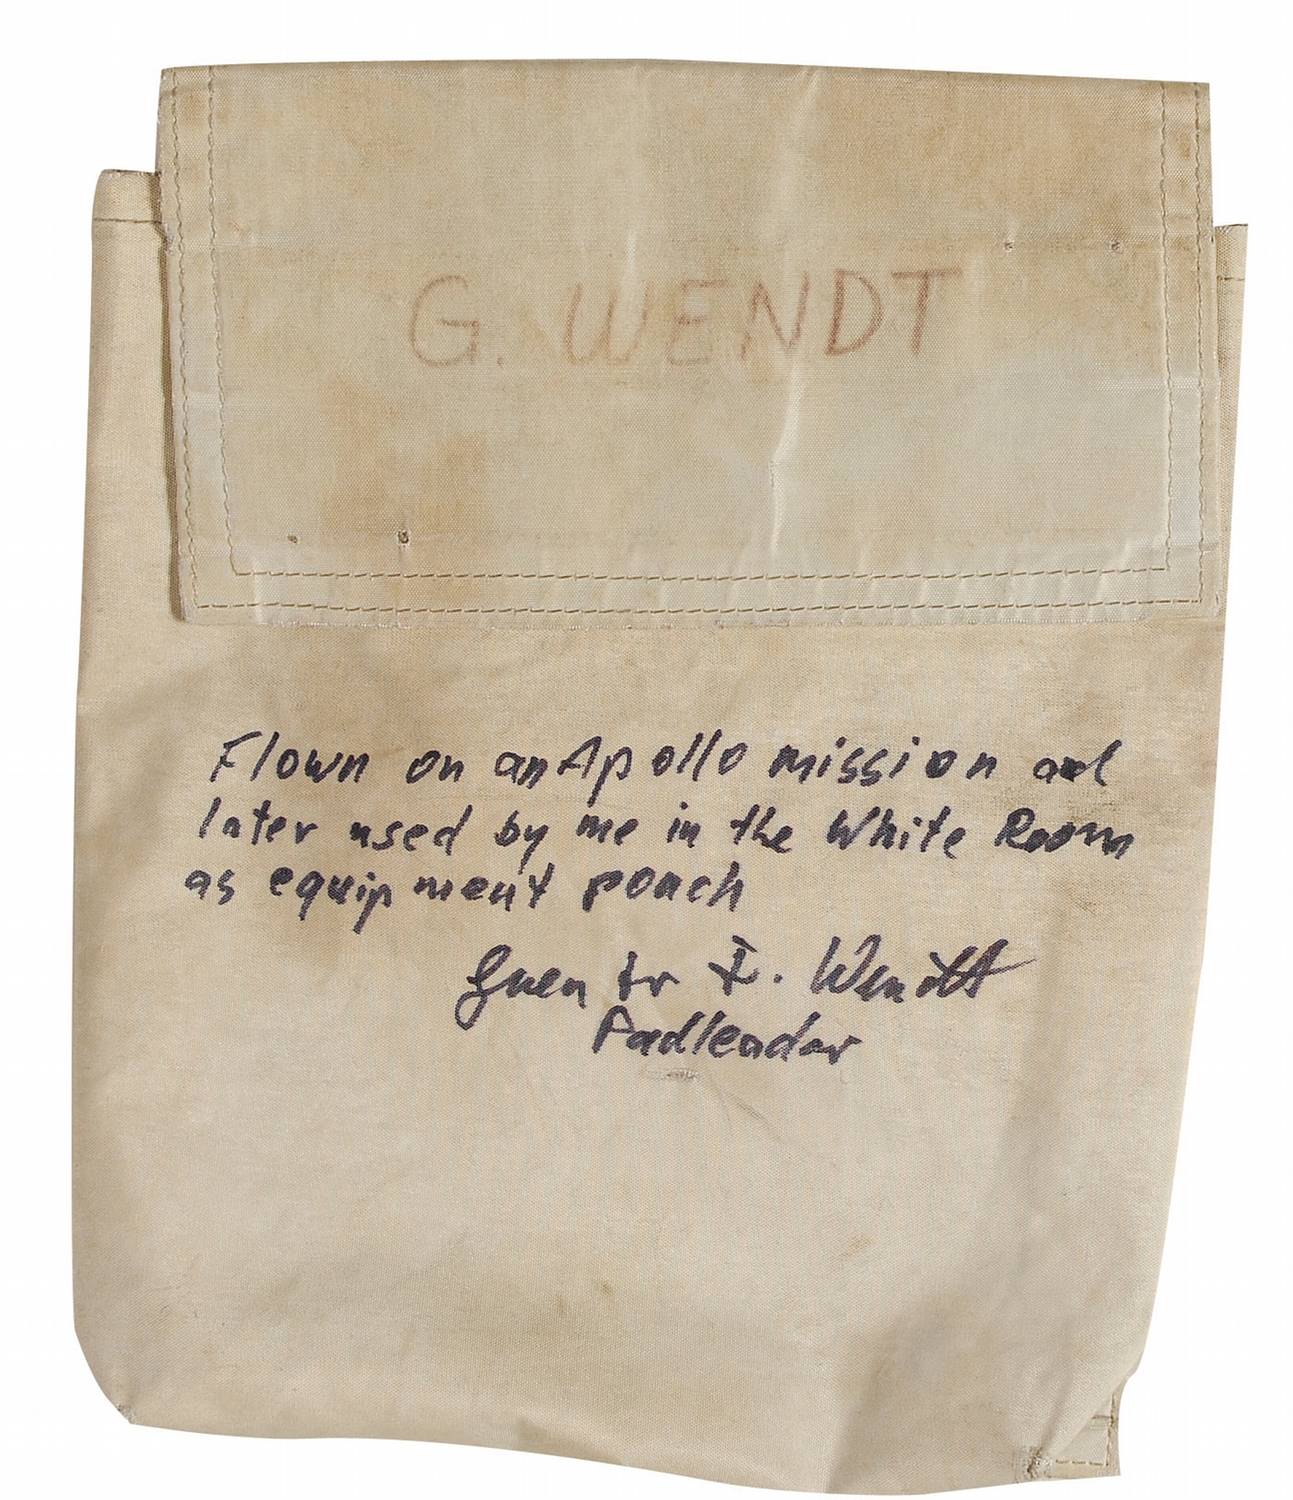 G. WENDT
Flown on an Apollo mission and
later used by me in the White Room
as equipment pouch
Guenter F. Wendt
Padleader